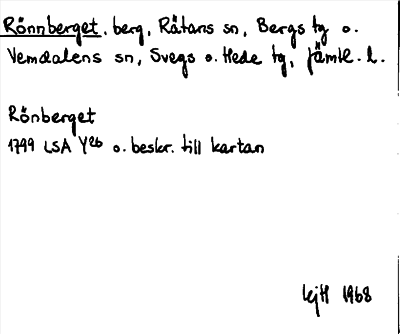 Rönnberget. berg, Rätans sn, Bergs tg o.
Vemdalens sn, Svegs o. Hede tg, Jämtl. l.
Rönberget
1799 LSA Y26 o. beskr. till kartan
1968